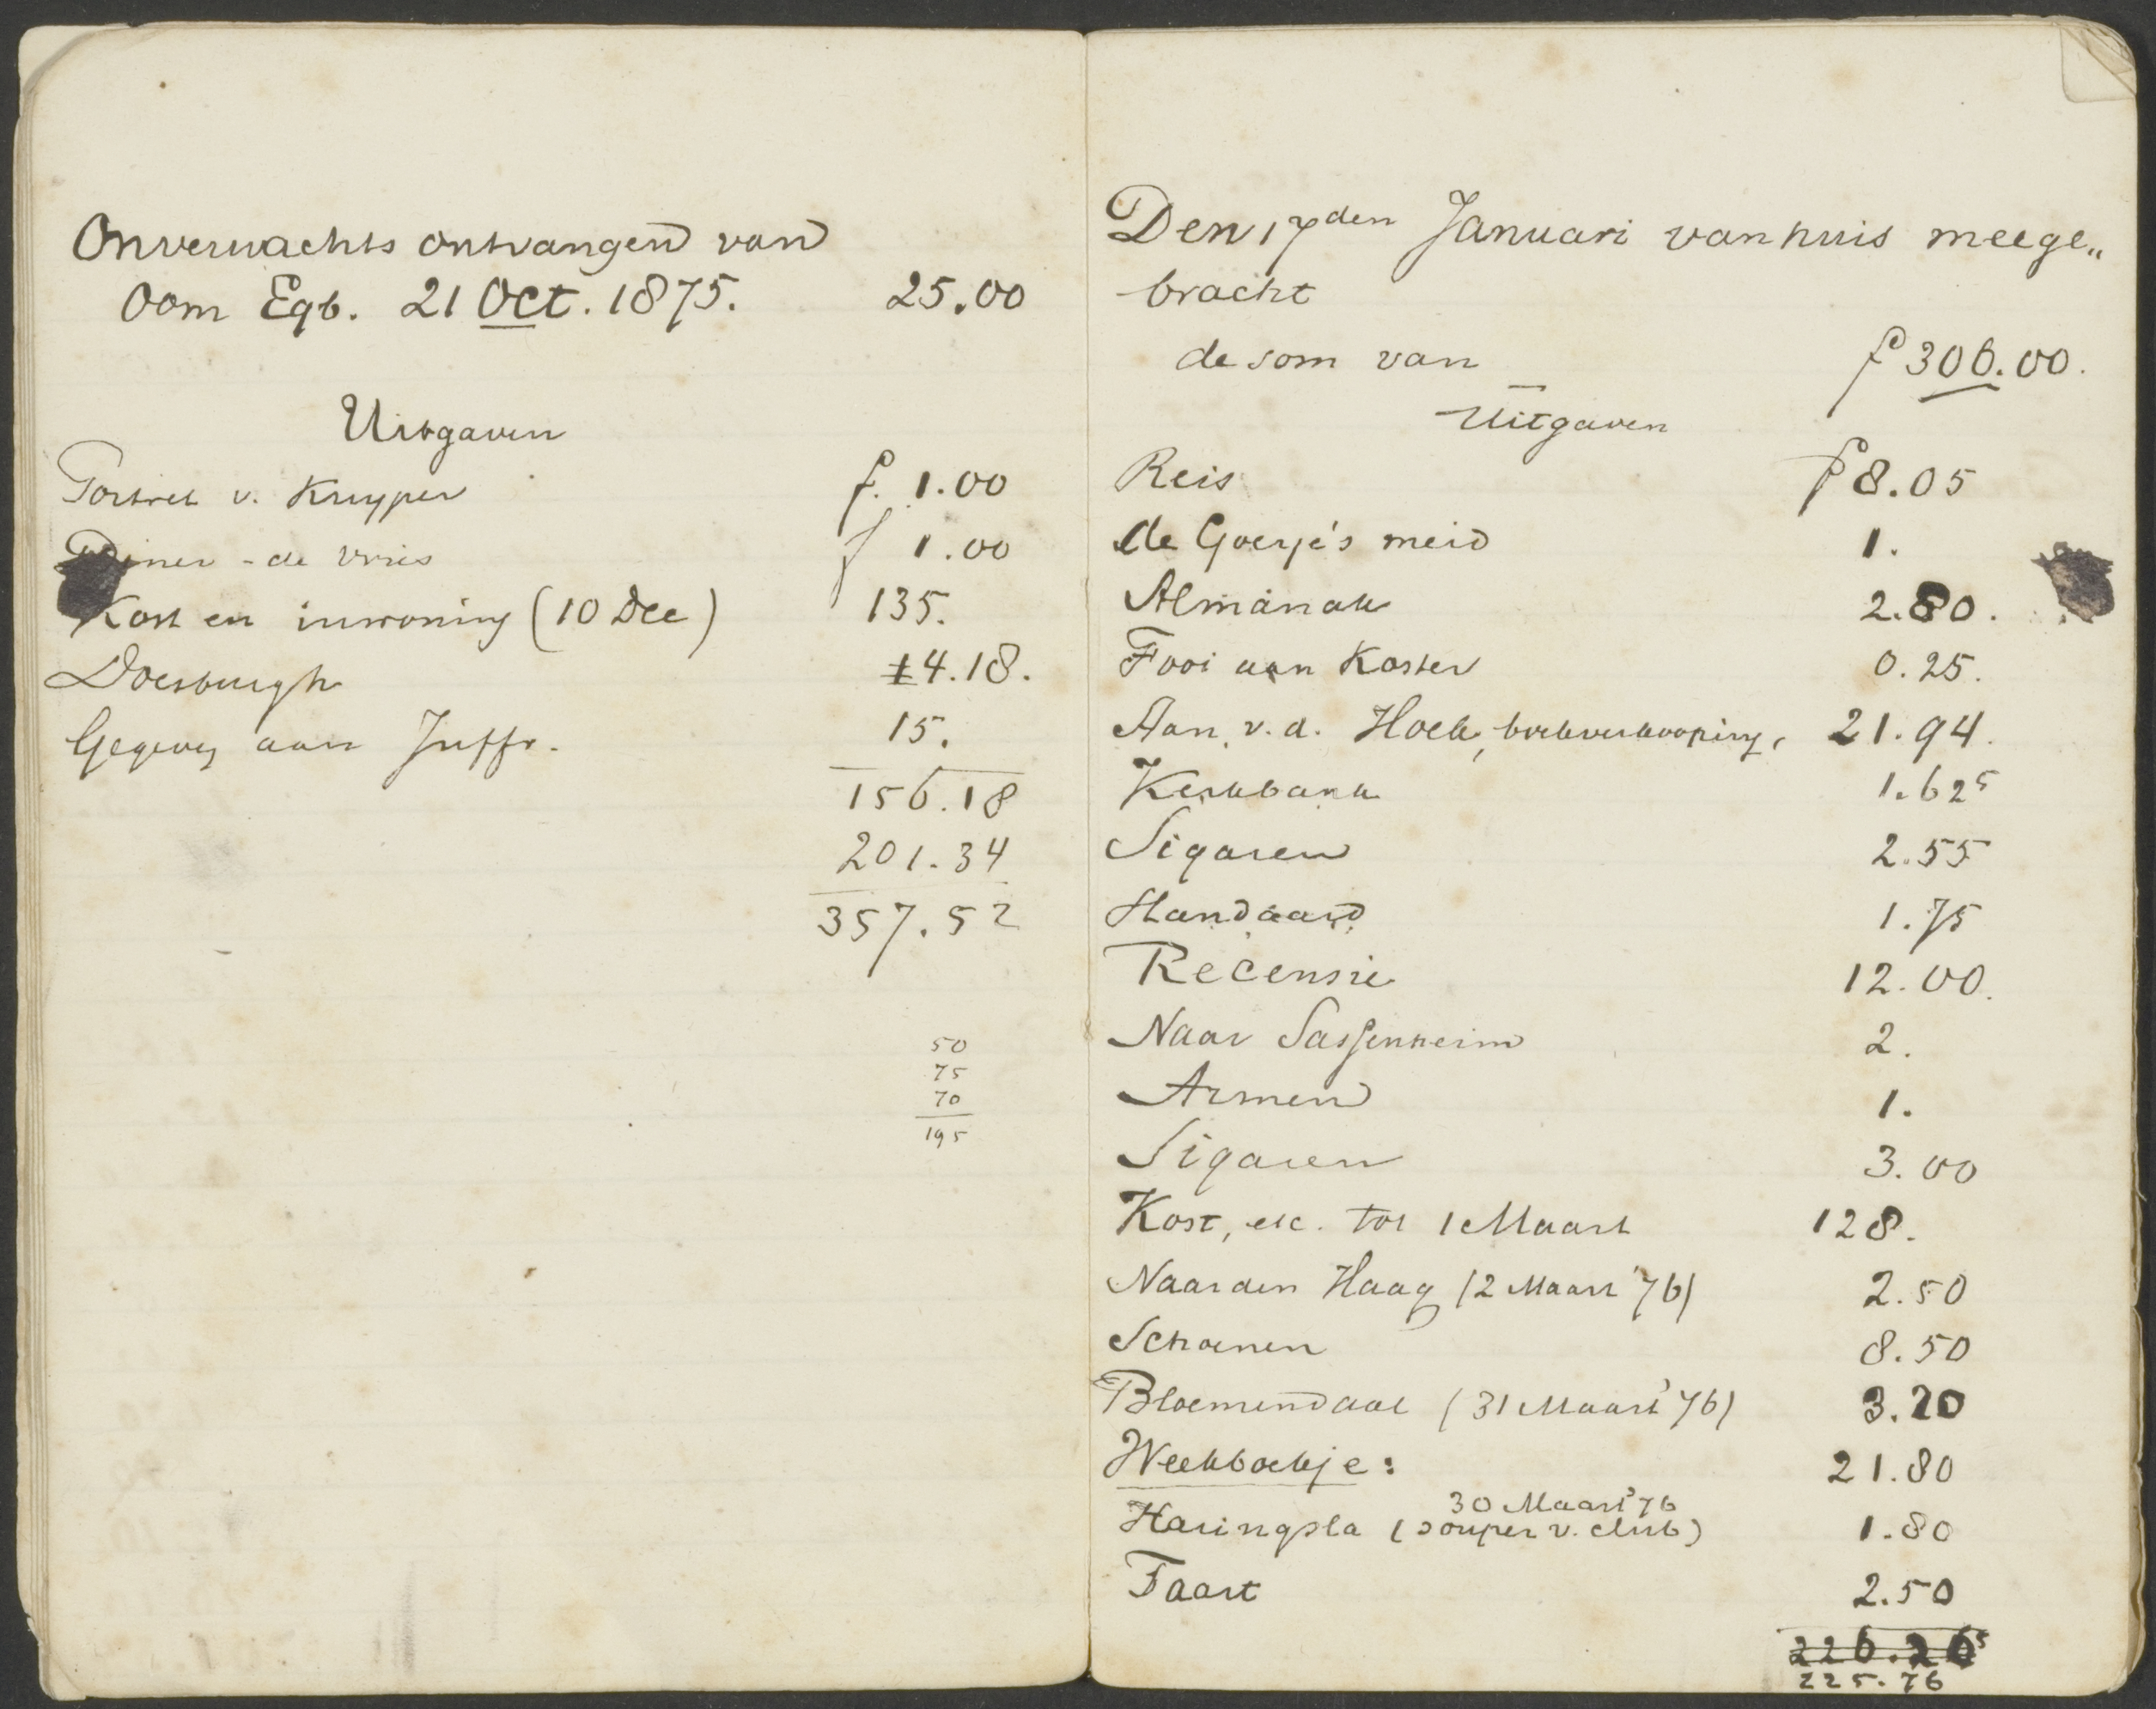 Onverwachts ontvangen van
Oom Egb. 21 Oct. 1875. 25.00
Uitgaven
Portret v. Kruyper f. 1.00
Diner - de Vries f 1.00
Kost en inwoning (10 Dec) 135.
Doesburgh 4.18.
Gegeven aan Juffr. 15.
156.18
201.34
357.52
50
75
70
195
Den 17den Januari van huis meege„
bracht
de som van f 306.00.
Uitgaven
Reis f 8.05
de Goeje's meid 1.
Almanak 2.80.
Fooi aan Koster 0.25.
Aan v. d. Hoek, boekverkooping, 21.94.
Kerkbank 1.62⁵
Sigaren 2.55
Handaard 1.75
Recensie 12.00.
Naar Sassenheim 2.
Armen 1.
Sigaren 3.00
Kost, etc. tot 1 Maart 128.
Naar den Haag (2 Maart '76) 2.50
Schoenen 8.50
Bloemendaal (31 Maart '76) 3.20
Weekboekje: 21.80
30 Maart '76
Haringsla (souper v. club) 1.80
Taart 2.50
226.26⁵
225.76